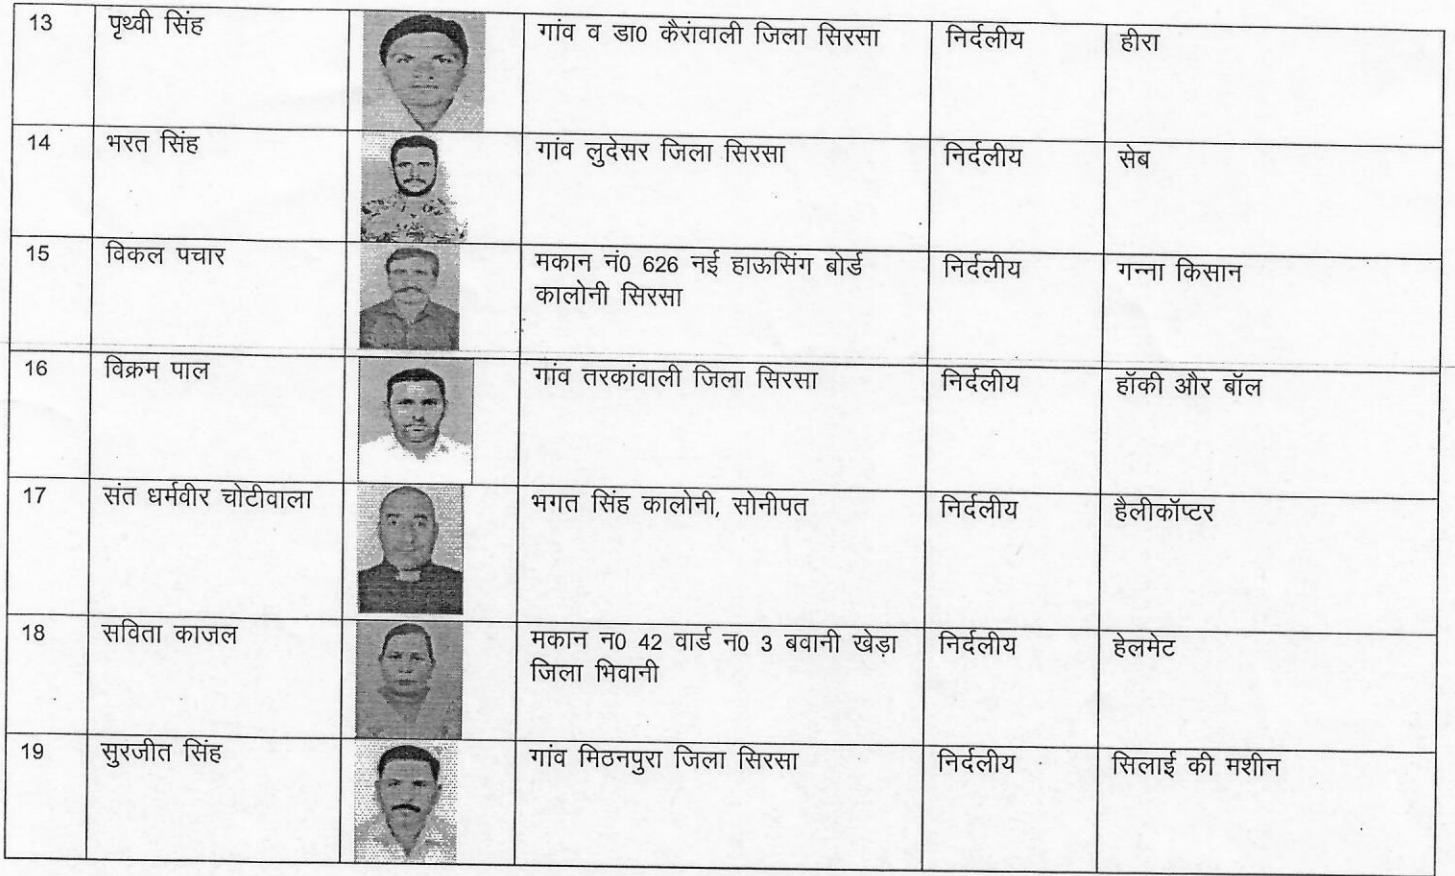 13 पृथ्वी सिंह गांव व डा0 कैरांवाली जिला सिरसा निर्दलीय हीरा
14 भरत सिंह गांव लुदेसर जिला सिरसा निर्दलीय सेब
15 विकल पचार मकान नं0 626 नई हाऊसिंग बोर्ड निर्दलीय गन्ना किसान
कालोनी सिरसा
16 विक्रम पाल गांव तरकांवाली जिला सिरसा निर्दलीय हॉकी और बॉल
17 संत धर्मवीर चोटीवाला भगत सिंह कालोनी, सोनीपत निर्दलीय हैलीकॉप्टर
18 सविता काजल मकान न0 42 वार्ड न0 3 बवानी खेड़ा निर्दलीय हेलमेट
जिला भिवानी
19 सुरजीत सिंह गांव मिठनपुरा जिला सिरसा निर्दलीय सिलाई की मशीन